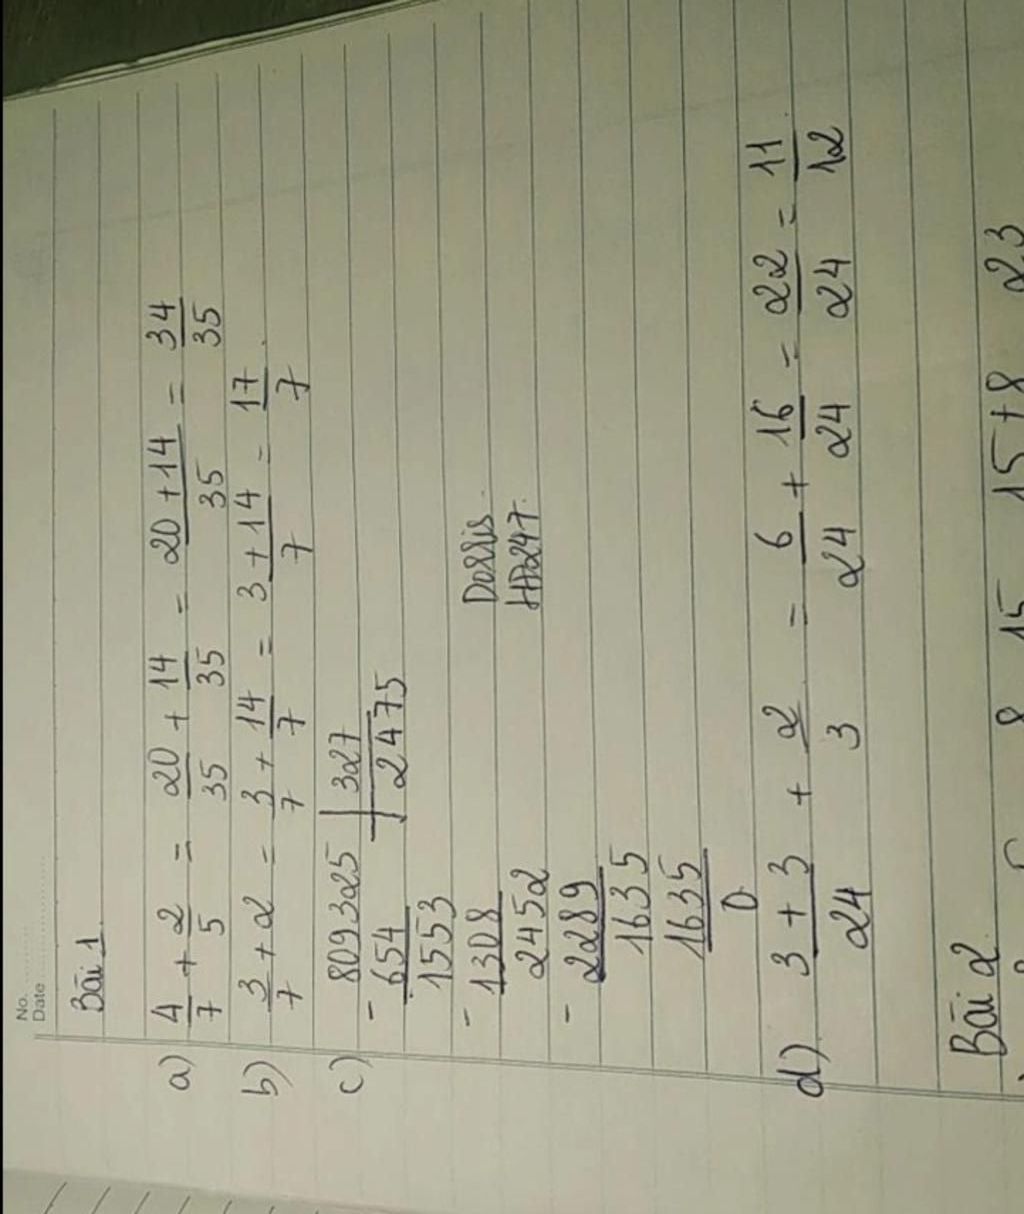 No.
Date
Bài 1
a) 4/7 + 2/5 = 20/35 + 14/35 = (20 + 14)/35 = 34/35
b) 3/7 + 2 = 3/7 + 14/7 = (3 + 14)/7 = 17/7.
c) 809325 | 327
- 654 | 2475
1553
- 1308
2452
- 2289
1635
1635
0
HD247.
d) (3 + 3)/24 + 2/3 = 6/24 + 16/24 = 22/24 = 11/12
Bài 2
8 15 15+8 23